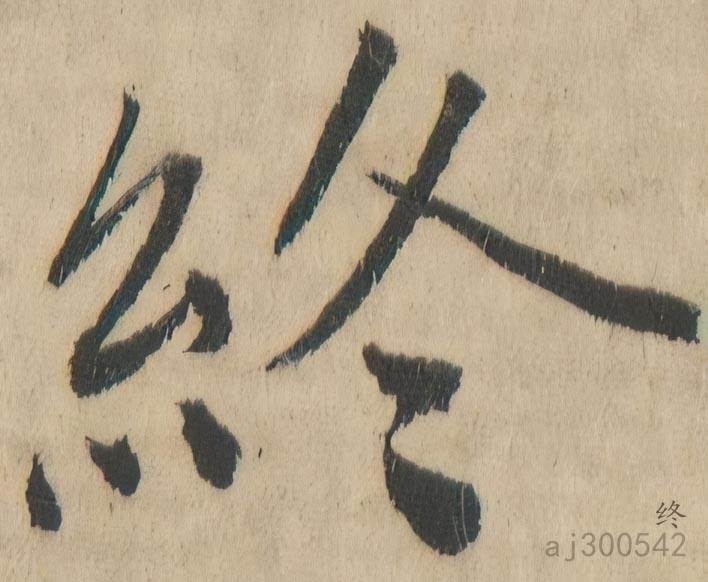 終
终
aj300542